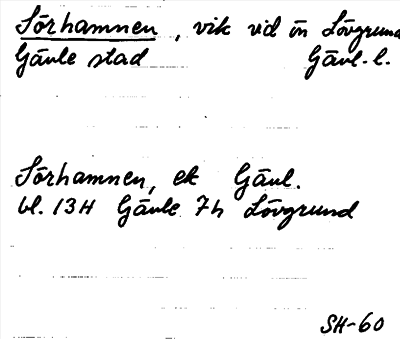 Sörhamnen, vik vid ön Lövgrund
Gävle stad Gävl. l.
Sörhamnen, ek Gävl.
bl. 13H Gävle 7h Lövgrund
SH-60